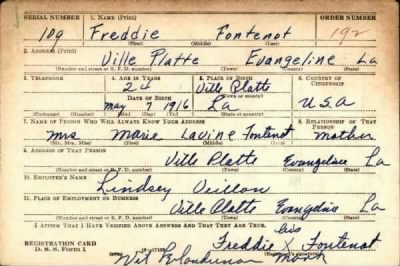 SERIAL NUMBER 1. NAME (Print) ORDER NUMBER
109 Freddie Fontenot 192
(First) (Middle) (Last)
2. ADDRESS (Print)
Ville Platte Evangeline La
(Number and street or R. F. D. number) (Town) (County) (State)
3. TELEPHONE 4. AGE IN YEARS 5. PLACE OF BIRTH 6. COUNTRY OF CITIZENSHIP
24 Ville Platte
DATE OF BIRTH (Town or county)
May 7 1916 La U.S.A
(Exchange) (Number) (Mo.) (Day) (Yr.) (State or country)
7. NAME OF PERSON WHO WILL ALWAYS KNOW YOUR ADDRESS 8. RELATIONSHIP OF THAT PERSON
Mrs Marie Lavine Fontenot Mother
(Mr., Mrs., Miss) (First) (Middle) (Last)
9. ADDRESS OF THAT PERSON
Ville Platte Evangeline La
(Number and street or R. F. D. number) (Town) (County) (State)
10. EMPLOYER'S NAME
Lindsey Veillon
11. PLACE OF EMPLOYMENT OR BUSINESS
Ville Platte Evangeline La
(Number and street or R. F. D. number) (Town) (County) (State)
I AFFIRM THAT I HAVE VERIFIED ABOVE ANSWERS AND THAT THEY ARE TRUE.
his
REGISTRATION CARD Freddie X Fontenot
D. S. S. Form 1 Mark
Wit